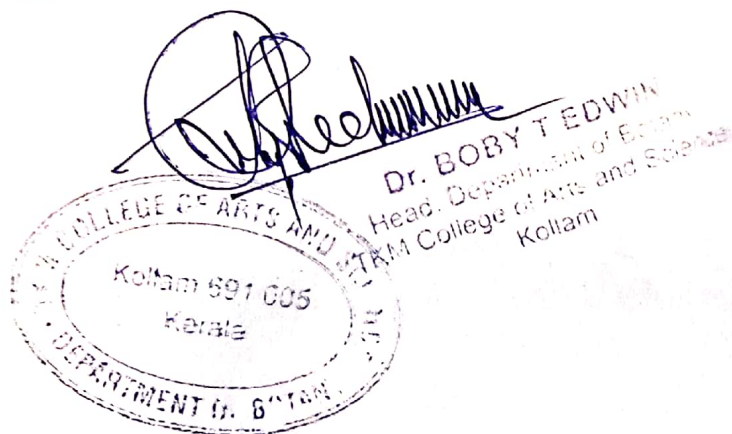 Dr. BOBY T EDWIN
Head, Department of Botany
TKM College of Arts and Science
Kollam
COLLEGE OF ARTS AND
Kollam 691 005
Kerala
DEPARTMENT OF BOTANY